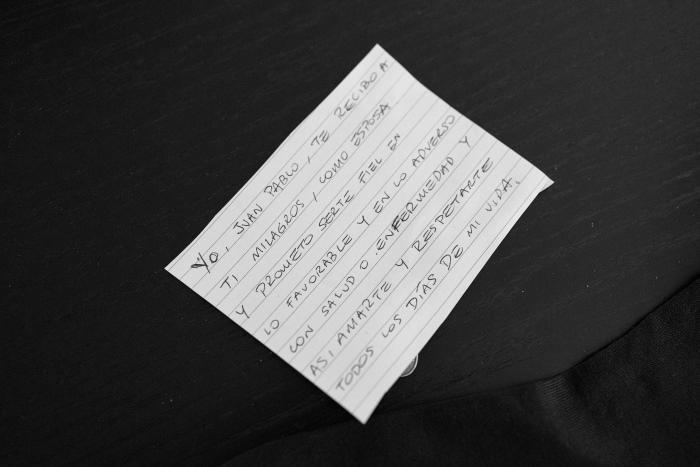 YO, JUAN PABLO, TE RECIBO A
TI MILAGROS, COMO ESPOSA
Y PROMETO SERTE FIEL EN
LO FAVORABLE Y EN LO ADVERSO
CON SALUD O ENFERMEDAD Y
ASI, AMARTE Y RESPETARTE
TODOS LOS DÍAS DE MI VIDA.